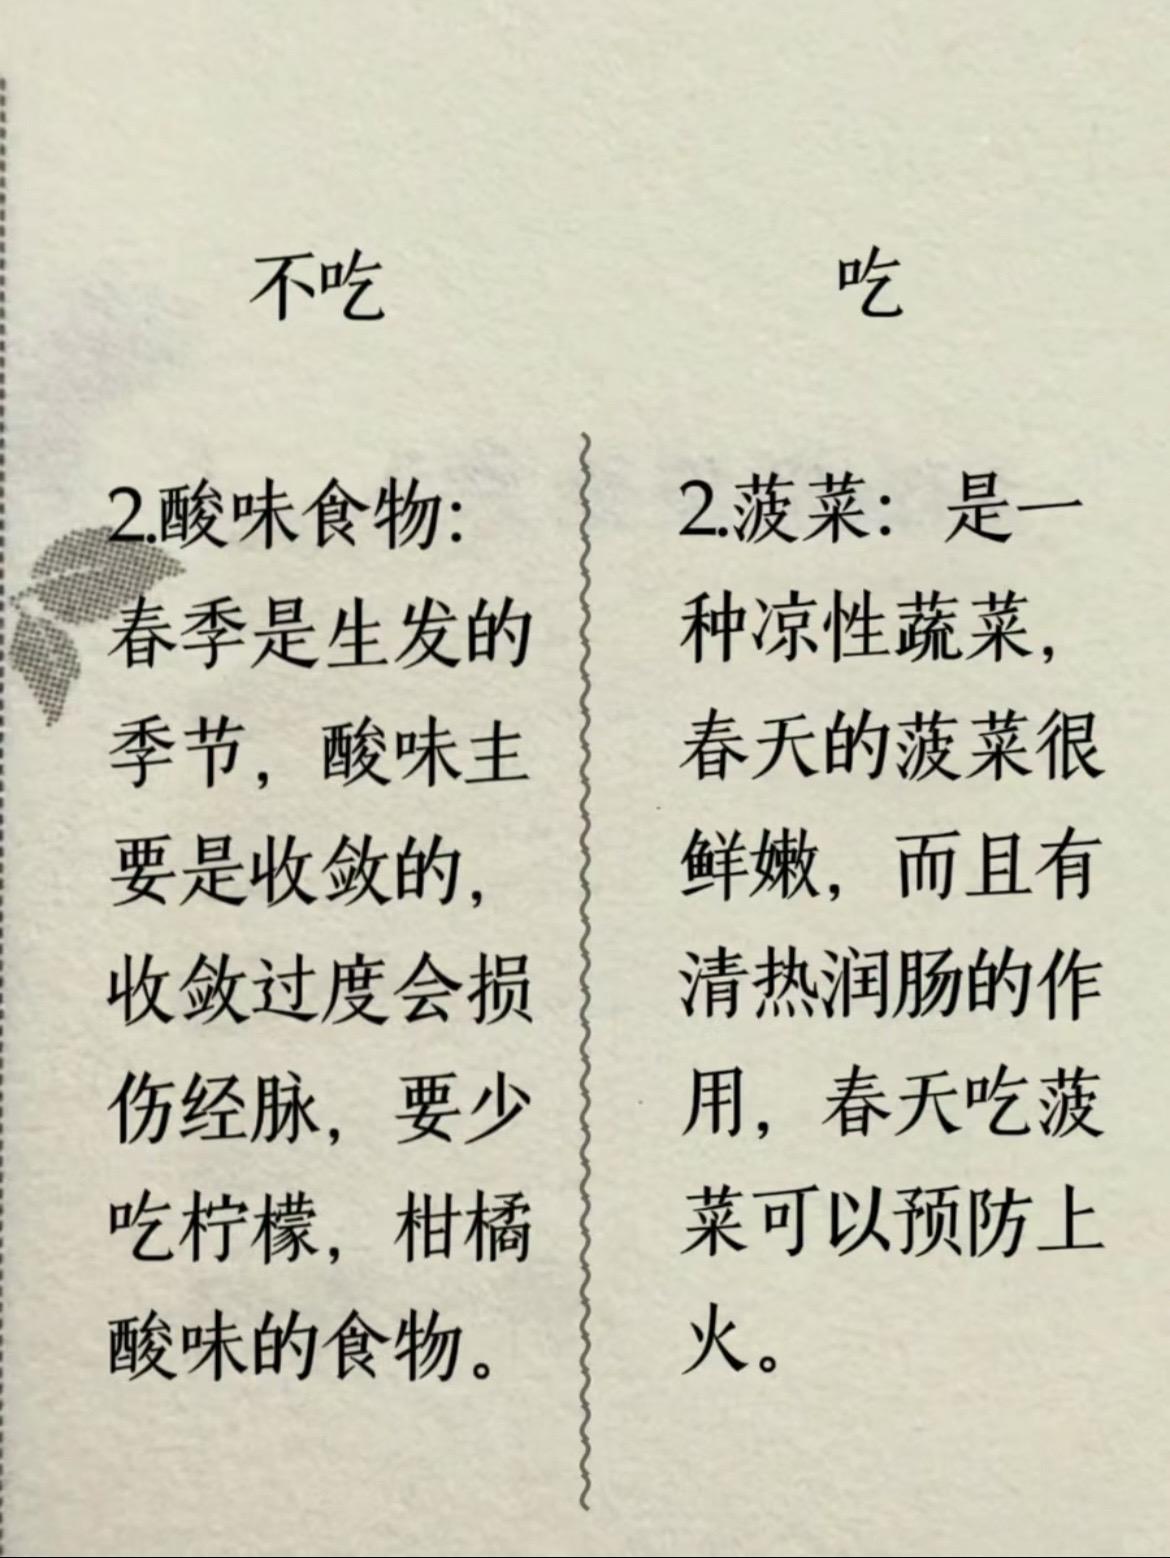 不吃
2.酸味食物：
春季是生发的
季节，酸味主
要是收敛的，
收敛过度会损
伤经脉，要少
吃柠檬，柑橘
酸味的食物。
吃
2.菠菜：是一
种凉性蔬菜，
春天的菠菜很
鲜嫩，而且有
清热润肠的作
用，春天吃菠
菜可以预防上
火。